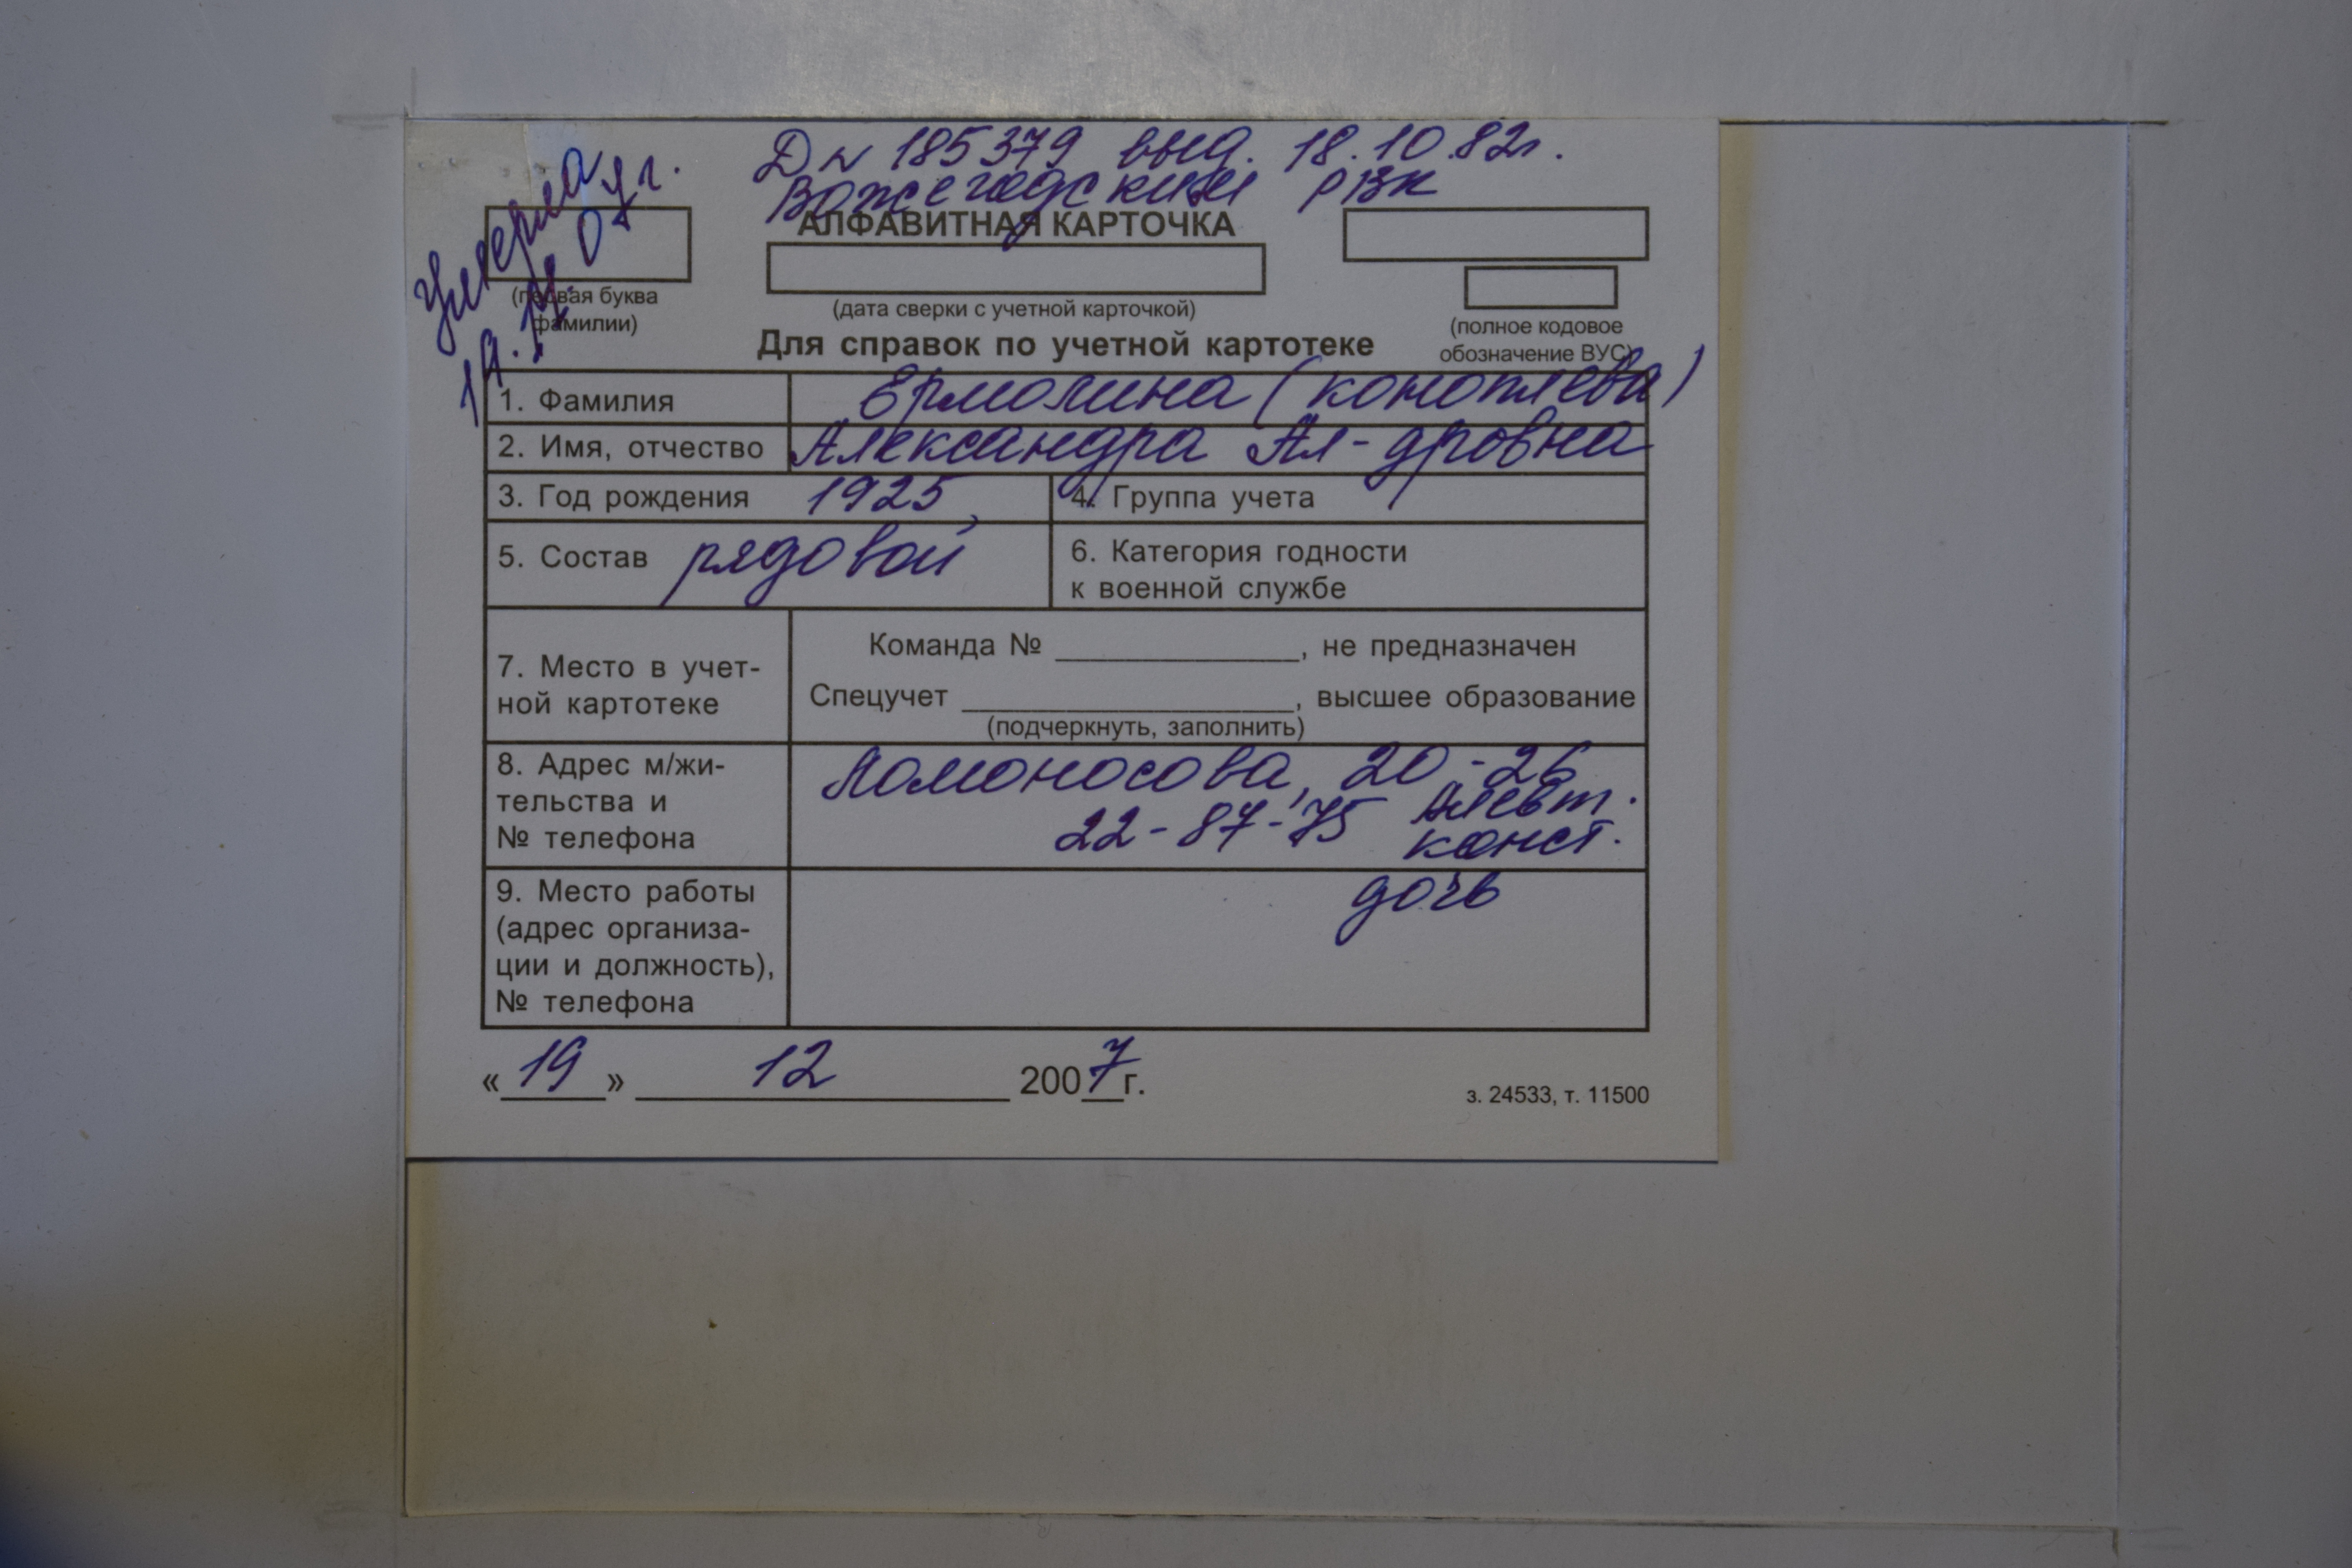 Д № 185379 выд. 18.10.82г.
Вожегодский РВК
Умерла
19.12.07г.
АЛФАВИТНАЯ КАРТОЧКА
(первая буква
фамилии)
(дата сверки с учетной карточкой)
(полное кодовое
обозначение ВУС)
Для справок по учетной картотеке
1. Фамилия Ермолина (Коноплева)
2. Имя, отчество Александра Ал-дровна
3. Год рождения 1925 4. Группа учета
5. Состав рядовой 6. Категория годности
к военной службе
7. Место в учет-
ной картотеке
Команда № ______, не предназначен
Спецучет ______, высшее образование
(подчеркнуть, заполнить)
8. Адрес м/жи-
тельства и
№ телефона
Ломоносова, 20-26
22-87-75 Алевт.
конст.
дочь
9. Место работы
(адрес организа-
ции и должность),
№ телефона
«19» 12 2007г.
з. 24533, т. 11500